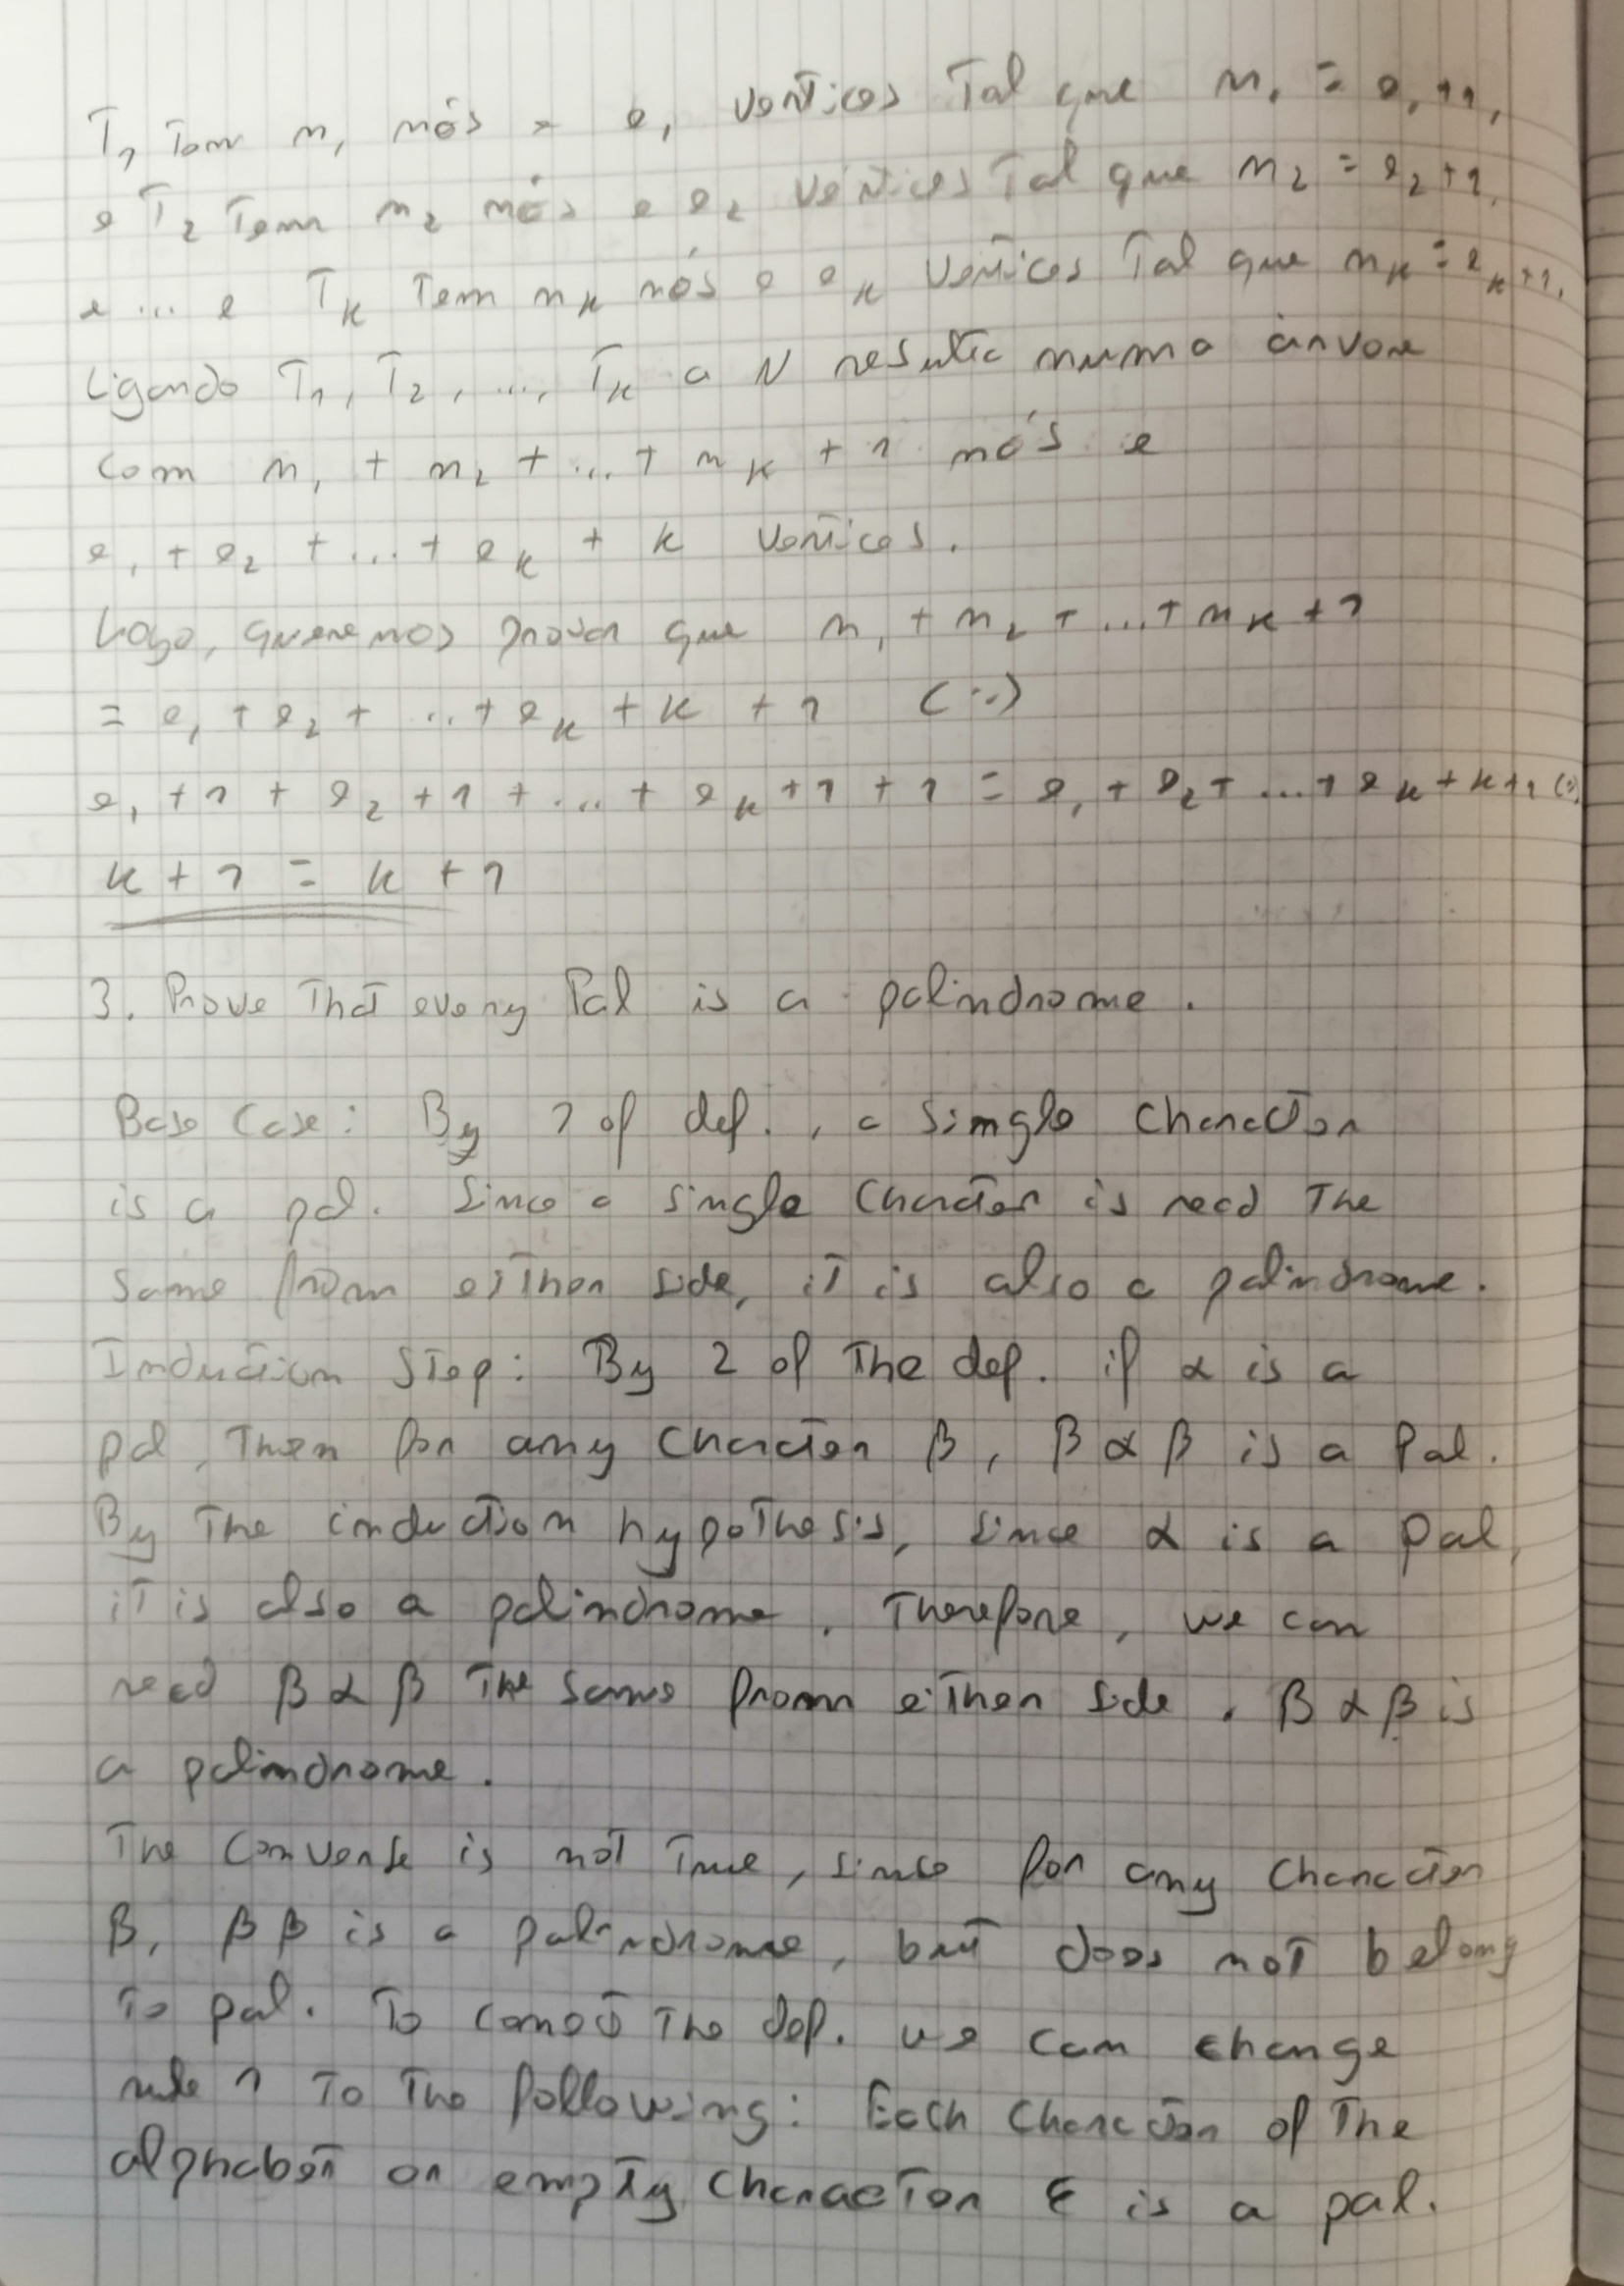 T₁ Tem n₁ nós e e₁ vértices Tal que n₁ = e₁+1,
e T₂ Tem n₂ nós e e₂ vértices Tal que n₂ = e₂+1,
e ... e Tₖ Tem nₖ nós e eₖ vértices Tal que nₖ = eₖ+1.
Ligando T₁, T₂, ..., Tₖ a N resulta numa árvore
com n₁ + n₂ + ... + nₖ + 1 nós e
e₁ + e₂ + ... + eₖ + k vértices.
Logo, queremos provar que n₁ + n₂ + ... + nₖ + 1
= e₁ + e₂ + ... + eₖ + k + 1 (:.)
e₁ + 1 + e₂ + 1 + ... + eₖ + 1 + 1 = e₁ + e₂ + ... + eₖ + k + 1 (:.)
k + 1 = k + 1
3. Prove That every Pal is a palindrome.
Base Case: By 1 of def., a single character
is a pal. Since a single character is read The
same from either side, it is also a palindrome.
Induction Step: By 2 of The def. if α is a
pal, Then for any character β, β α β is a Pal.
By The induction hypothesis, since α is a pal,
it is also a palindrome. Therefore, we can
read β α β The same from either side. β α β is
a palindrome.
The converse is not True, since for any character
β, β β is a palindrome, but does not belong
To pal. To correct The def. we can change
rule 1 To The following: Each character of The
alphabet or empty character ε is a pal.